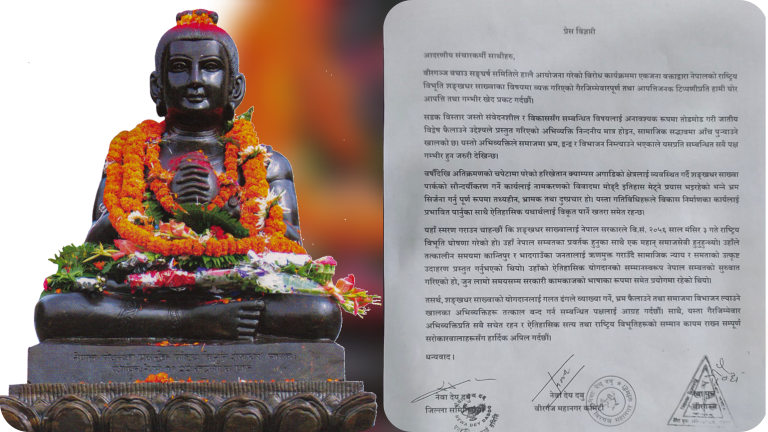 प्रेस विज्ञप्ती
आदरणीय संचारकर्मी साथीहरु,
वीरगञ्ज बचाउ सङ्घर्ष समितिले हालै आयोजना गरेको विरोध कार्यक्रममा एकजना वक्ताद्वारा नेपालको राष्ट्रिय
विभूति शङ्खधर साख्वाका विषयमा व्यक्त गरिएको गैरजिम्मेवारपूर्ण तथा आपत्तिजनक टिप्पणीप्रति हामी घोर
आपत्ति तथा गम्भीर खेद प्रकट गर्दछौं।
सडक विस्तार जस्तो संवेदनशील र विकाससँग सम्बन्धित विषयलाई अनावश्यक रूपमा तोडमोड गरी जातीय
विद्वेष फैलाउने उद्देश्यले प्रस्तुत गरिएको अभिव्यक्ति निन्दनीय मात्र होइन, सामाजिक सद्भावमा आँच पुऱ्याउने
खालको छ। यस्तो अभिव्यक्तिले समाजमा भ्रम, द्वन्द्व र विभाजन निम्त्याउने भएकाले यसप्रति सम्बन्धित सबै पक्ष
गम्भीर हुन जरुरी देखिन्छ।
वर्षौंदेखि अतिक्रमणको चपेटामा परेको हरिखेतान क्याम्पस अगाडिको क्षेत्रलाई व्यवस्थित गर्दै शङ्खधर साख्वा
पार्कको सौन्दर्यीकरण गर्ने कार्यलाई नामकरणको विवादमा मोड्दै इतिहास मेट्ने प्रयास भइरहेको भन्ने भ्रम
सिर्जना गर्नु पूर्ण रूपमा तथ्यहीन, भ्रामक तथा दुष्प्रचार हो। यस्ता गतिविधिहरूले विकास निर्माणका कार्यलाई
प्रभावित पार्नुका साथै ऐतिहासिक यथार्थलाई विकृत पार्ने खतरा समेत रहन्छ।
यहाँ स्मरण गराउन चाहन्छौं कि शङ्खधर साख्वालाई नेपाल सरकारले वि.सं. २०५६ साल मंसिर ३ गते राष्ट्रिय
विभूति घोषणा गरेको हो। उहाँ नेपाल सम्वतका प्रवर्तक हुनुका साथै एक महान् समाजसेवी हुनुहुन्थ्यो। उहाँले
तत्कालीन समयमा कान्तिपुर र भादगाउँका जनतालाई ऋणमुक्त गराउँदै सामाजिक न्याय र समताको उत्कृष्ट
उदाहरण प्रस्तुत गर्नुभएको थियो। उहाँको ऐतिहासिक योगदानको सम्मानस्वरूप नेपाल सम्वतको सुरुवात
गरिएको हो, जुन लामो समयसम्म सरकारी कामकाजको भाषाका रूपमा समेत प्रयोगमा रहेको थियो।
तसर्थ, शङ्खधर साख्वाको योगदानलाई गलत ढंगले व्याख्या गर्ने, भ्रम फैलाउने तथा समाजमा विभाजन ल्याउने
खालका अभिव्यक्तिहरू तत्काल बन्द गर्न सम्बन्धित पक्षलाई आग्रह गर्दछौं। साथै, यस्ता गैरजिम्मेवार
अभिव्यक्तिप्रति सबै सचेत रहन र ऐतिहासिक सत्य तथा राष्ट्रिय विभूतिहरूको सम्मान कायम राख्न सम्पूर्ण
सरोकारवालाहरूसँग हार्दिक अपिल गर्दछौं।
धन्यवाद।
नेवा देय दबु
जिल्ला
नेवा देय दबु
वीरगंज महानगर कमिटी